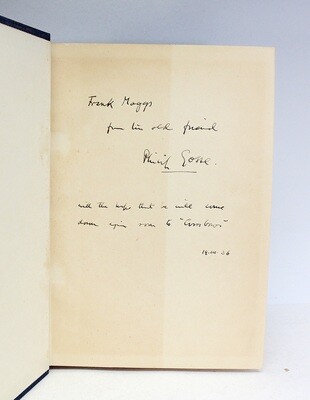 Frank Maggs
from his old friend
Philip Gosse.
with the hope that he will come
down again soon to "Crossbows"